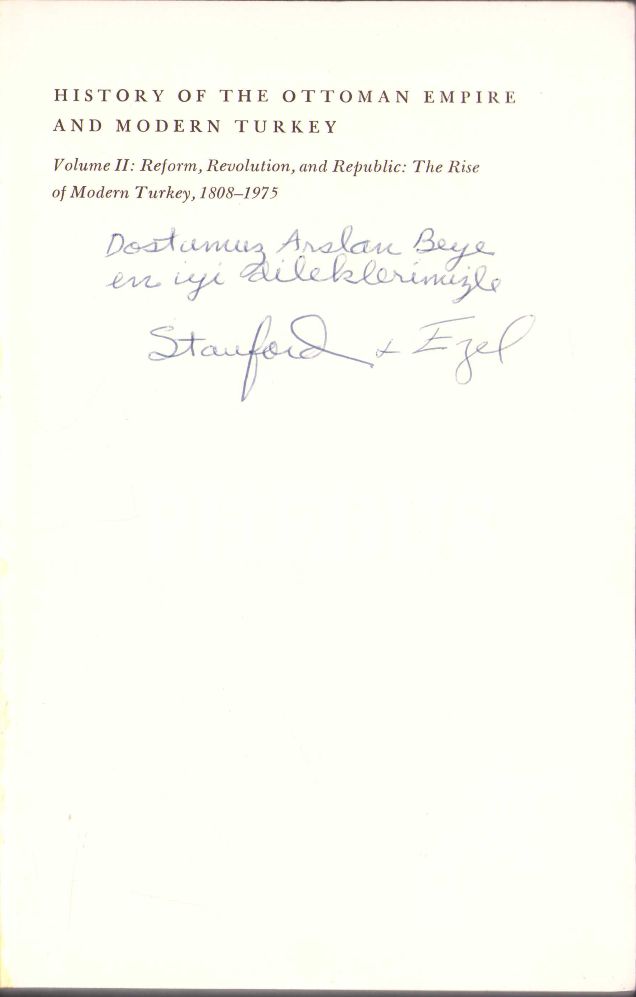 HISTORY OF THE OTTOMAN EMPIRE
AND MODERN TURKEY
Volume II: Reform, Revolution, and Republic: The Rise
of Modern Turkey, 1808–1975
Dostumuz Arslan Beye
en iyi dileklerimizle
Stanford & Ezel